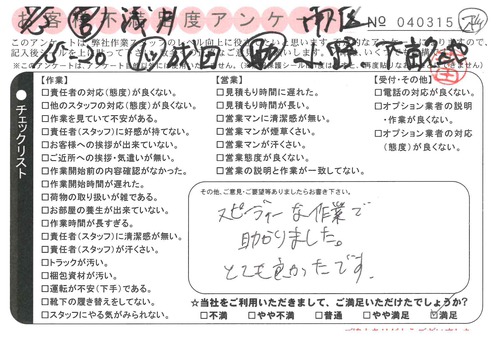 お客様不満足度アンケート
No 040315
このアンケートは、弊社作業スタッフのレベル向上に役立て
チェックリスト
【作業】
□責任者の対応(態度)が良くない。
□他のスタッフの対応(態度)が良くない。
□作業を見ていて不安がある。
□責任者(スタッフ)に好感が持てない。
□お客様への挨拶が出来ていない。
□ご近所への挨拶・気遣いが無い。
□作業開始前の内容確認がなかった。
□作業開始時間が遅れた。
□荷物の取り扱いが雑である。
□お部屋の養生が出来ていない。
□作業時間が長すぎる。
□責任者(スタッフ)に清潔感が無い。
□責任者(スタッフ)が汗くさい。
□トラックが汚い。
□梱包資材が汚い。
□運転が不安(下手)である。
□靴下の履き替えをしてない。
□スタッフにやる気がみられない。
【営業】
□見積もり時間に遅れた。
□見積もり時間が長い。
□営業マンに清潔感が無い。
□営業マンが煙草くさい。
□営業マンが汗くさい。
□営業態度が良くない。
□営業マンの挨拶が良くない。
【受付・その他】
□電話の対応が良くない。
□オプション業者の説明
・作業が良くない。
□オプション業者の対応
(態度)が良くない。
その他、ご意見・ご要望等ありましたらお書き下さい。
スピーディーな作業で
助かりました。
とても良かったです。
☆当社をご利用いただきまして、ご満足いただけたでしょうか?
□不満 □やや不満 □普通 □やや満足 ☑満足